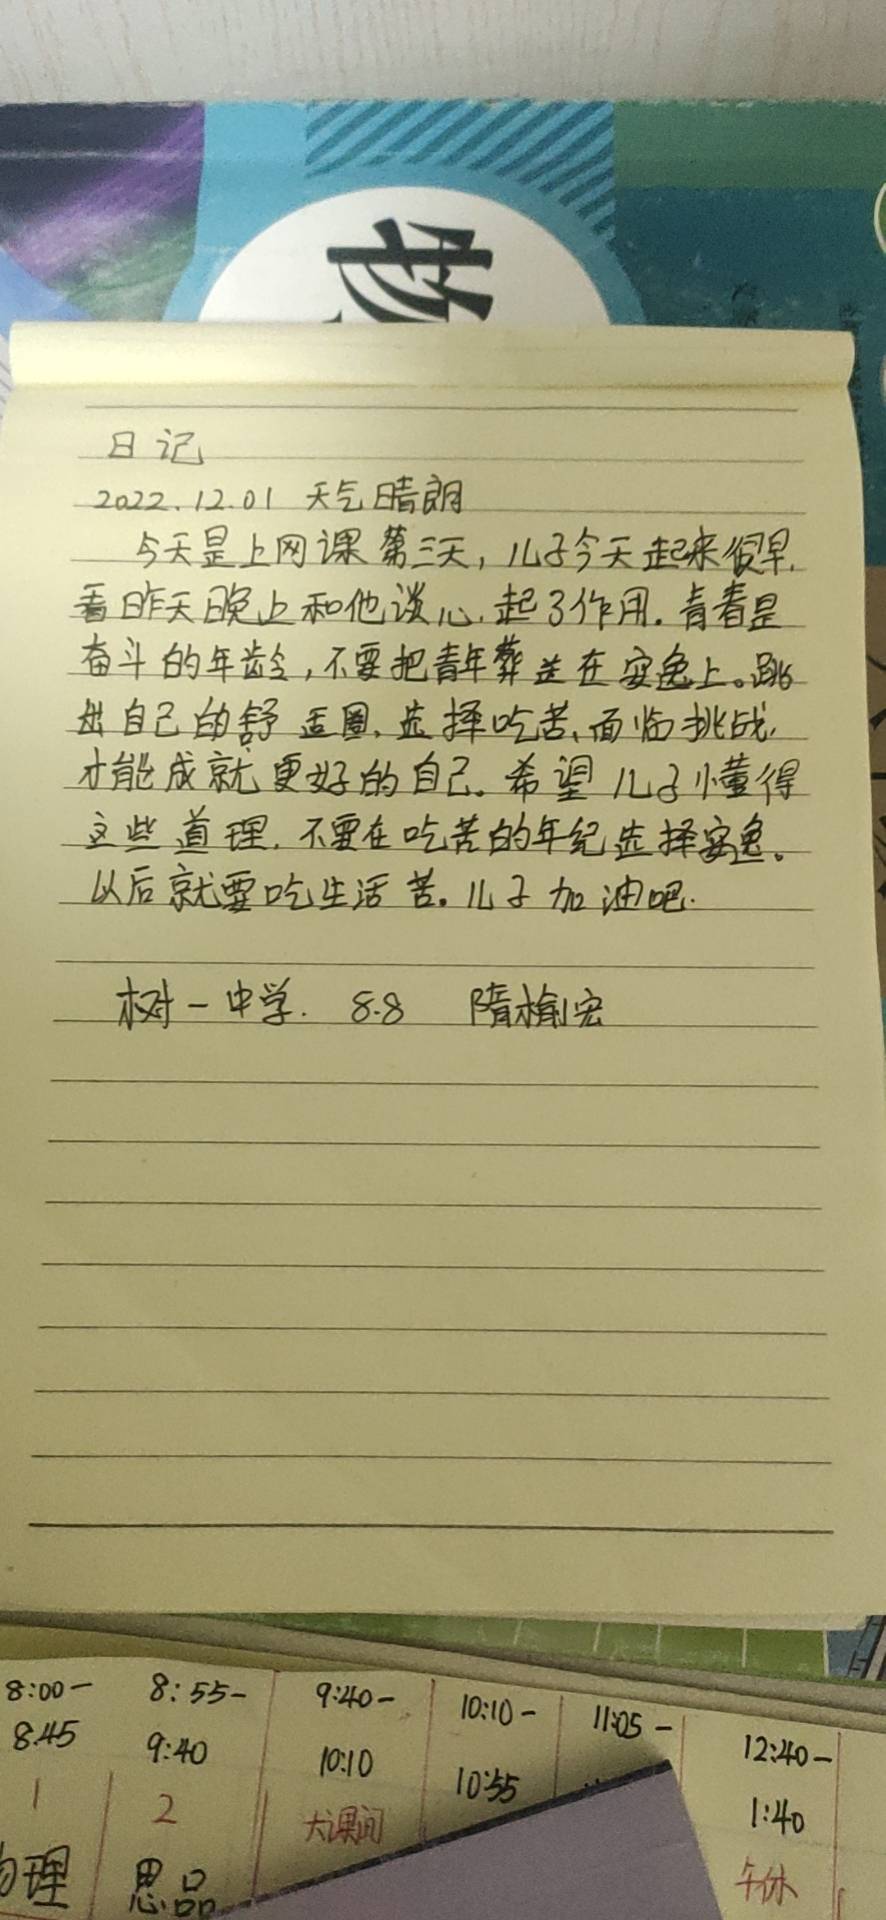 物
日记
2022.12.01 天气晴朗
今天是上网课第三天，儿子今天起来很早，
看昨天晚上和他谈心，起了作用。青春是
奋斗的年龄，不要把青年葬送在安逸上。跳
出自己的舒适圈，选择吃苦，面临挑战，
才能成就更好的自己。希望儿子懂得
这些道理，不要在吃苦的年纪选择安逸。
以后就要吃生活苦。儿子加油吧.
树一中学. 8.8 隋榆宏
8:00- 8:55- 9:40- 10:10- 11:05- 12:40-
8:45 9:40 10:10 10:55 1:40
1 2 大课间 午休
物理 思品